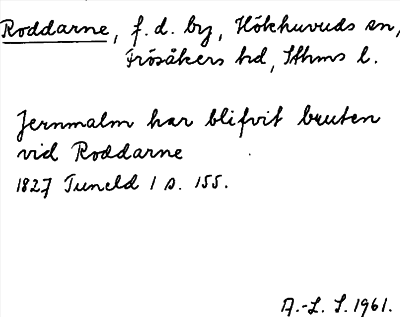 Roddarne, f.d. by, Hökhuvuds sn,
Frösåkers hd, Sthms l.
Jernmalm har blifvit bruten
vid Roddarne
1827 Tuneld 1 s. 155.
A.-L. S. 1961.